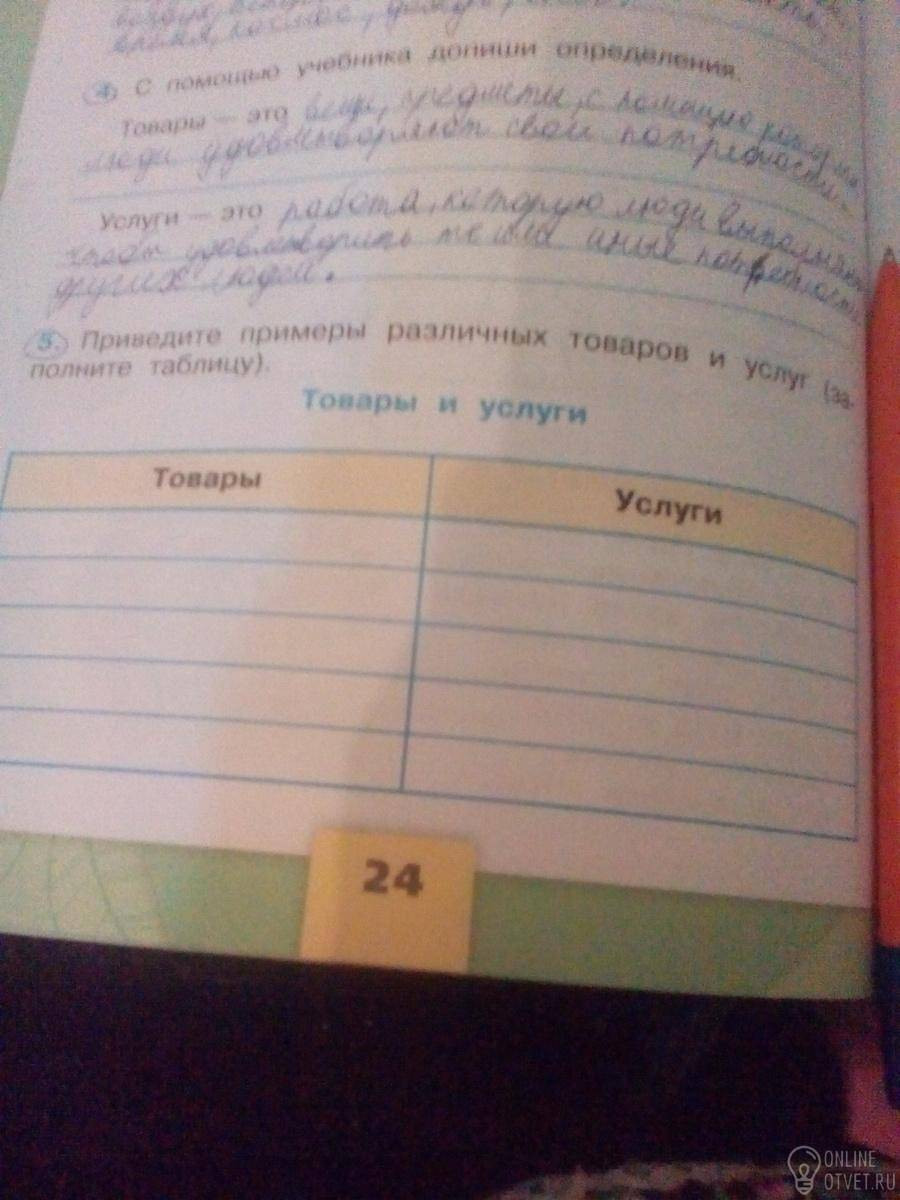 время, космос,
4. С помощью учебника допиши определения.
Товары — это вещи, предметы, с помощью которых
люди удовлетворяют свои потребности.
Услуги — это работа, которую люди выполняют
чтобы удовлетворить те или иные потребности
других людей.
5. Приведите примеры различных товаров и услуг (за-
полните таблицу).
Товары и услуги
Товары
Услуги
24
ONLINE
OTVET.RU